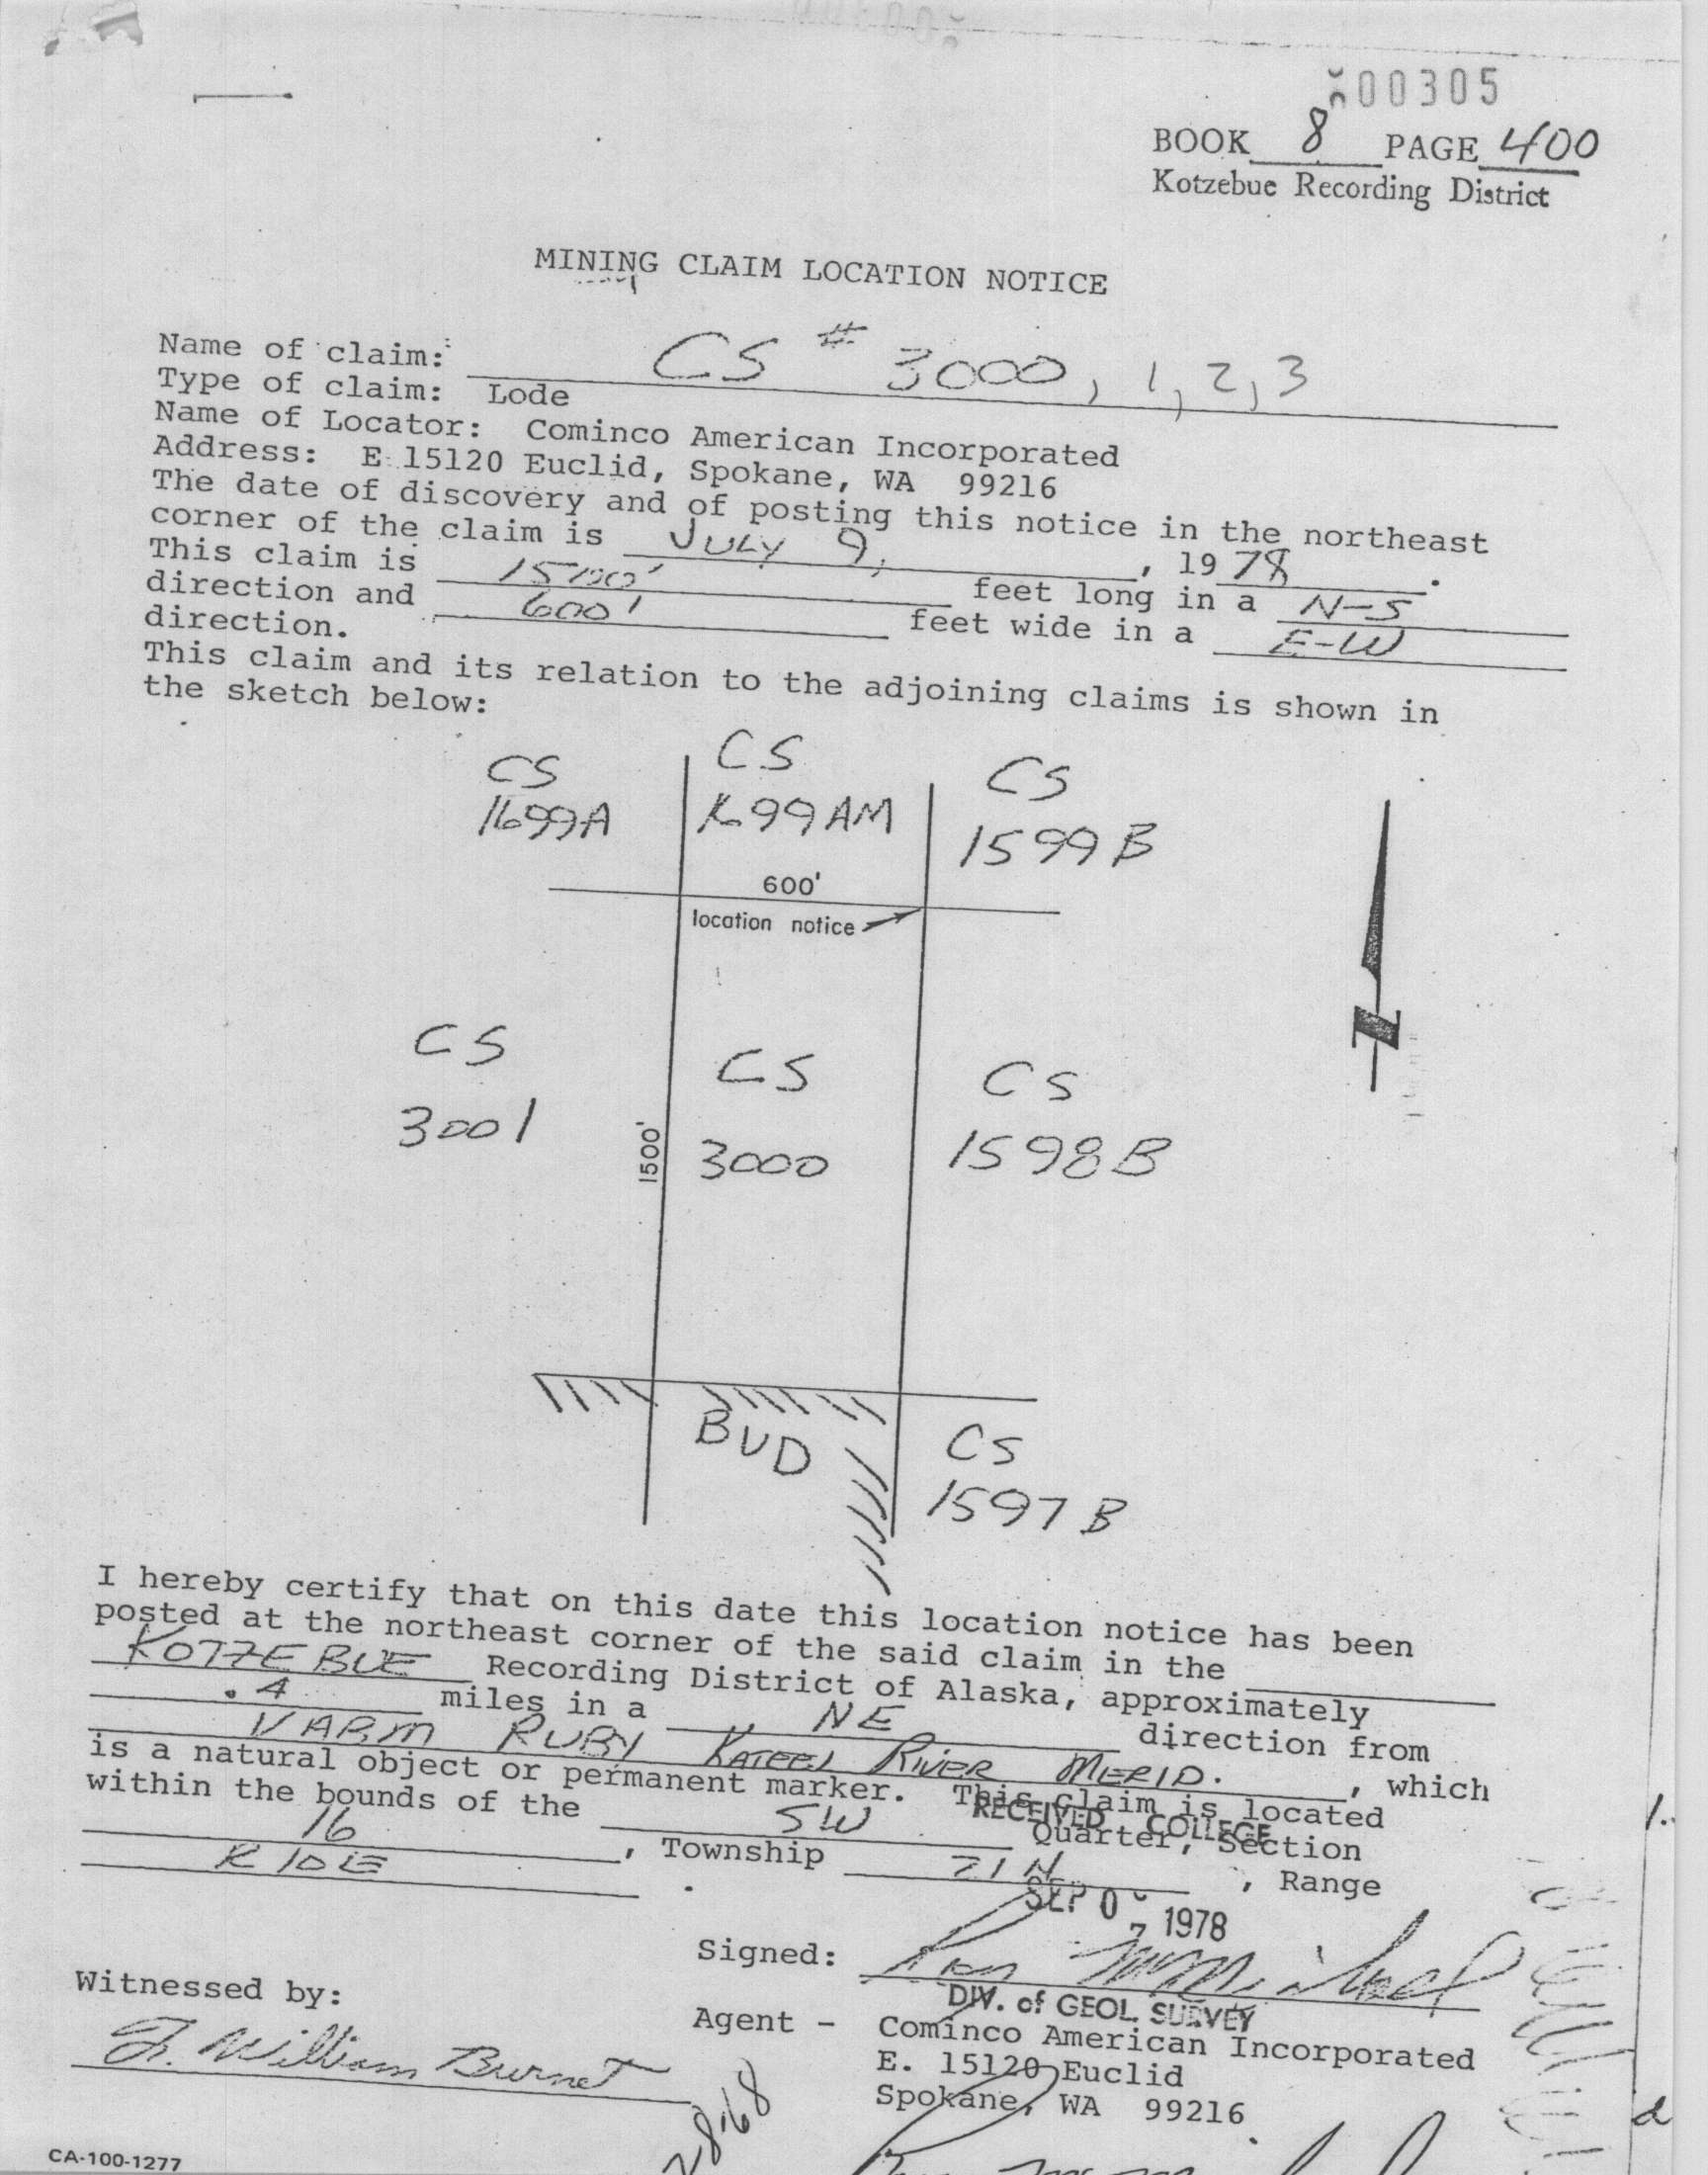 00305
BOOK 8 PAGE 400
Kotzebue Recording District
MINING CLAIM LOCATION NOTICE
Name of claim: CS # 3000, 1, 2, 3
Type of claim: Lode
Name of Locator: Cominco American Incorporated
Address: E 15120 Euclid, Spokane, WA 99216
The date of discovery and of posting this notice in the northeast
corner of the claim is JULY 9, , 1978 .
This claim is 1500' feet long in a N-S
direction and 600' feet wide in a E-W
direction.
This claim and its relation to the adjoining claims is shown in
the sketch below:
CS CS CS
1699A 1699AM 1599B
600'
location notice
N
CS CS CS
3001 3000 1598B
1500'
BUD CS
1597B
I hereby certify that on this date this location notice has been
posted at the northeast corner of the said claim in the
KOTZEBUE Recording District of Alaska, approximately
.4 miles in a NE direction from
VABM RUBY KATEEL RIVER MERID. , which
is a natural object or permanent marker. This claim is located
within the bounds of the SW Quarter, Section
16 , Township 21N , Range
R 10E .
RECEIVED COLLEGE
SEP 0 1978
DIV. of GEOL. SURVEY
Signed:
Witnessed by:
William Burnet
Agent - Cominco American Incorporated
E. 15120 Euclid
Spokane, WA 99216
CA-100-1277